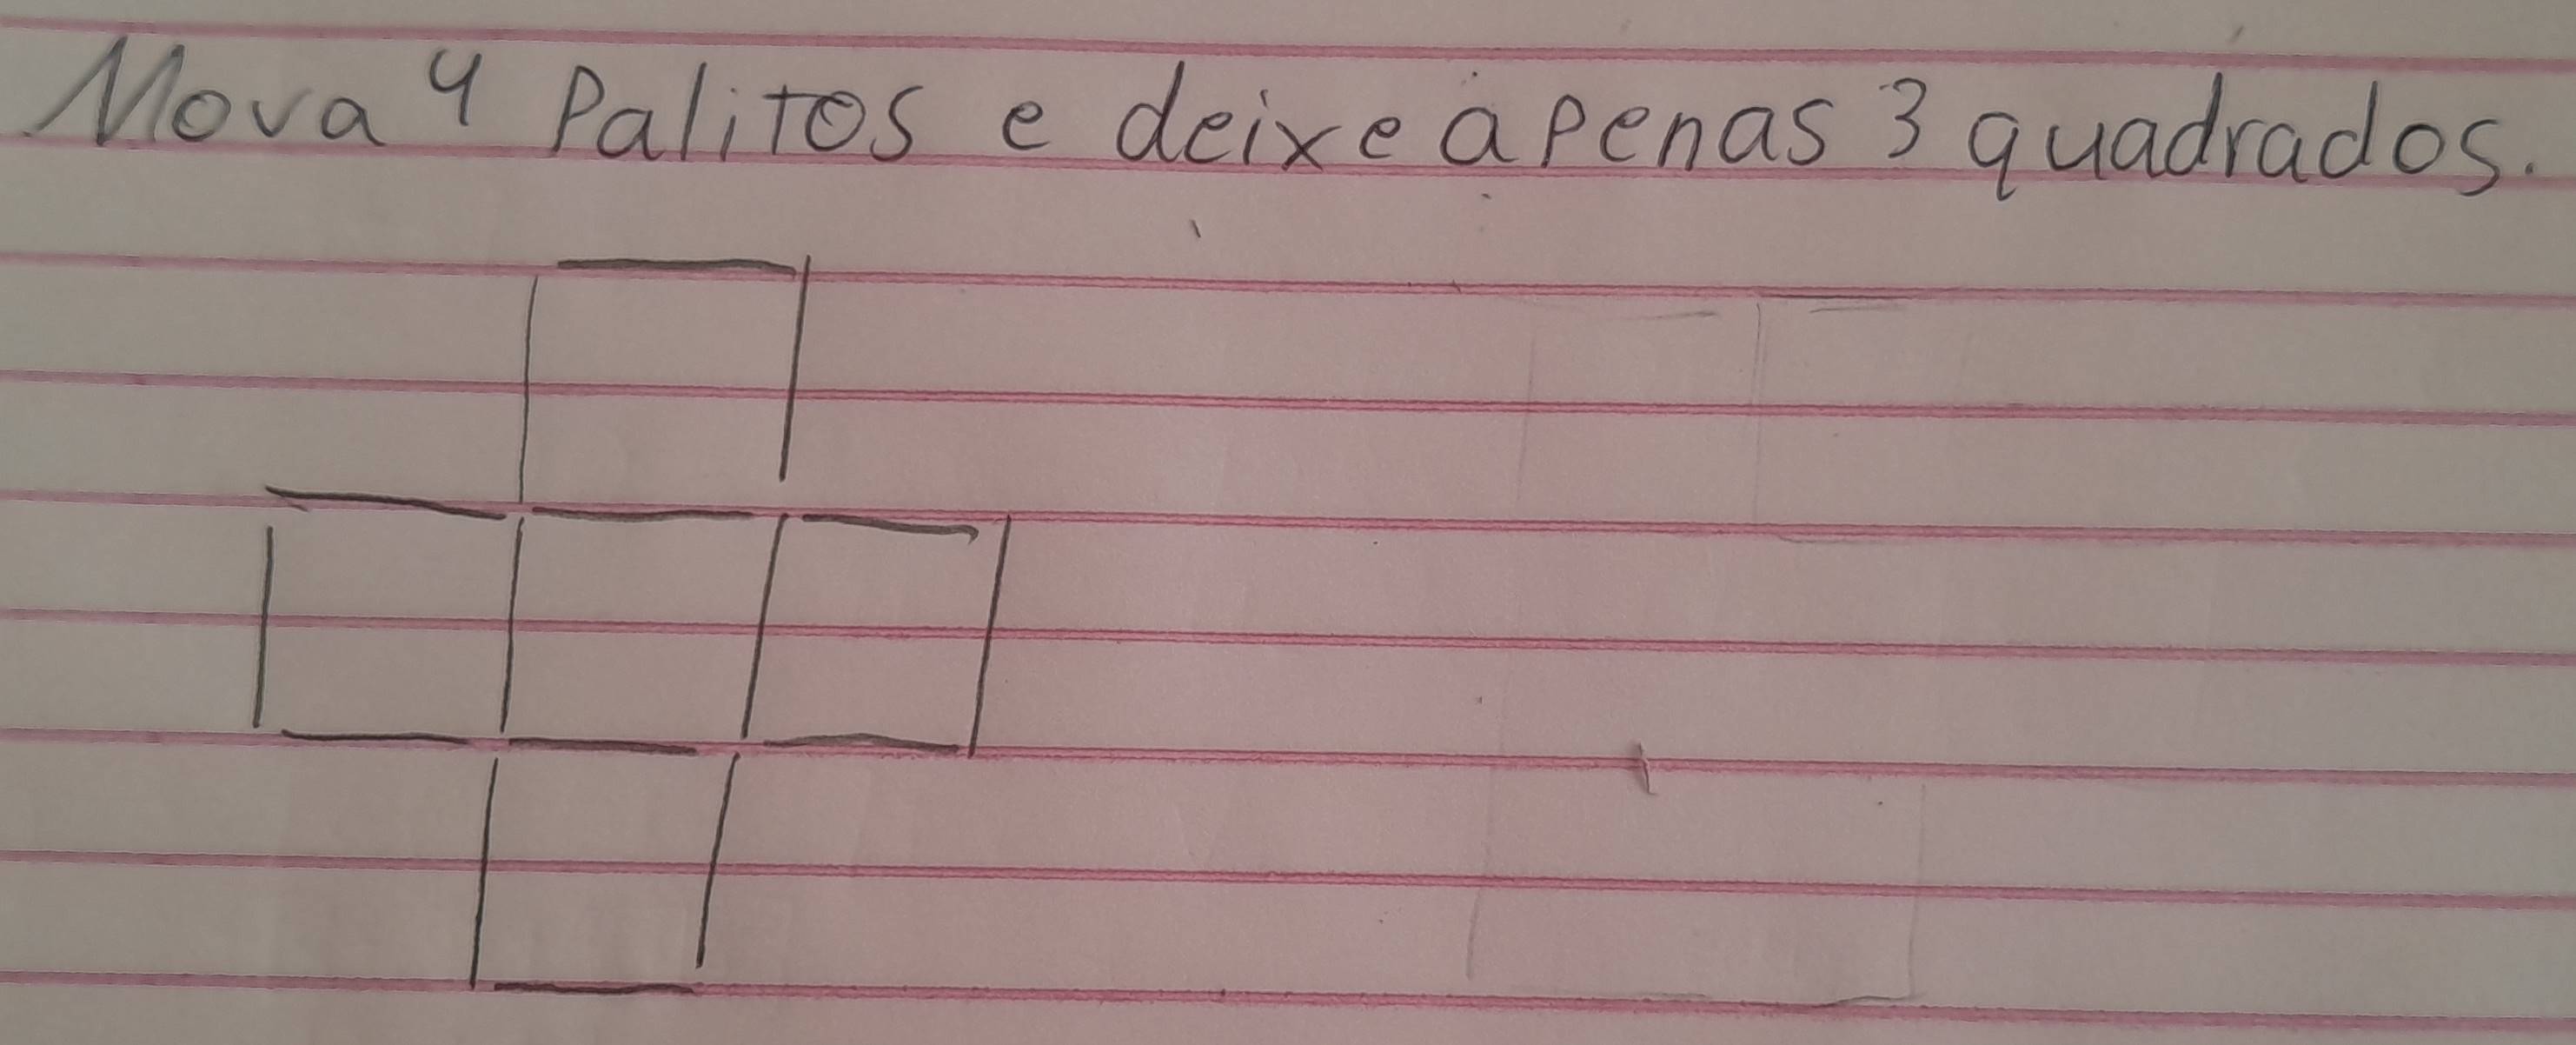 Mova 4 Palitos e deixe apenas 3 quadrados.